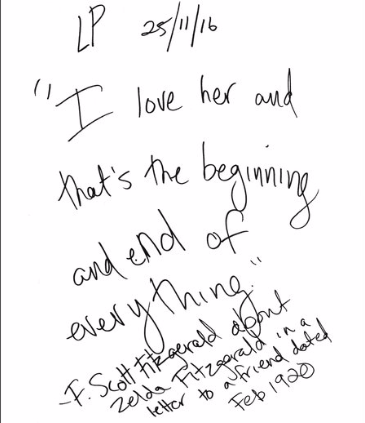 LP 25/11/16
"I love her and
that's the beginning
and end of
everything."
-F. Scott Fitzgerald about
Zelda Fitzgerald in a
letter to a friend dated
Feb 1920